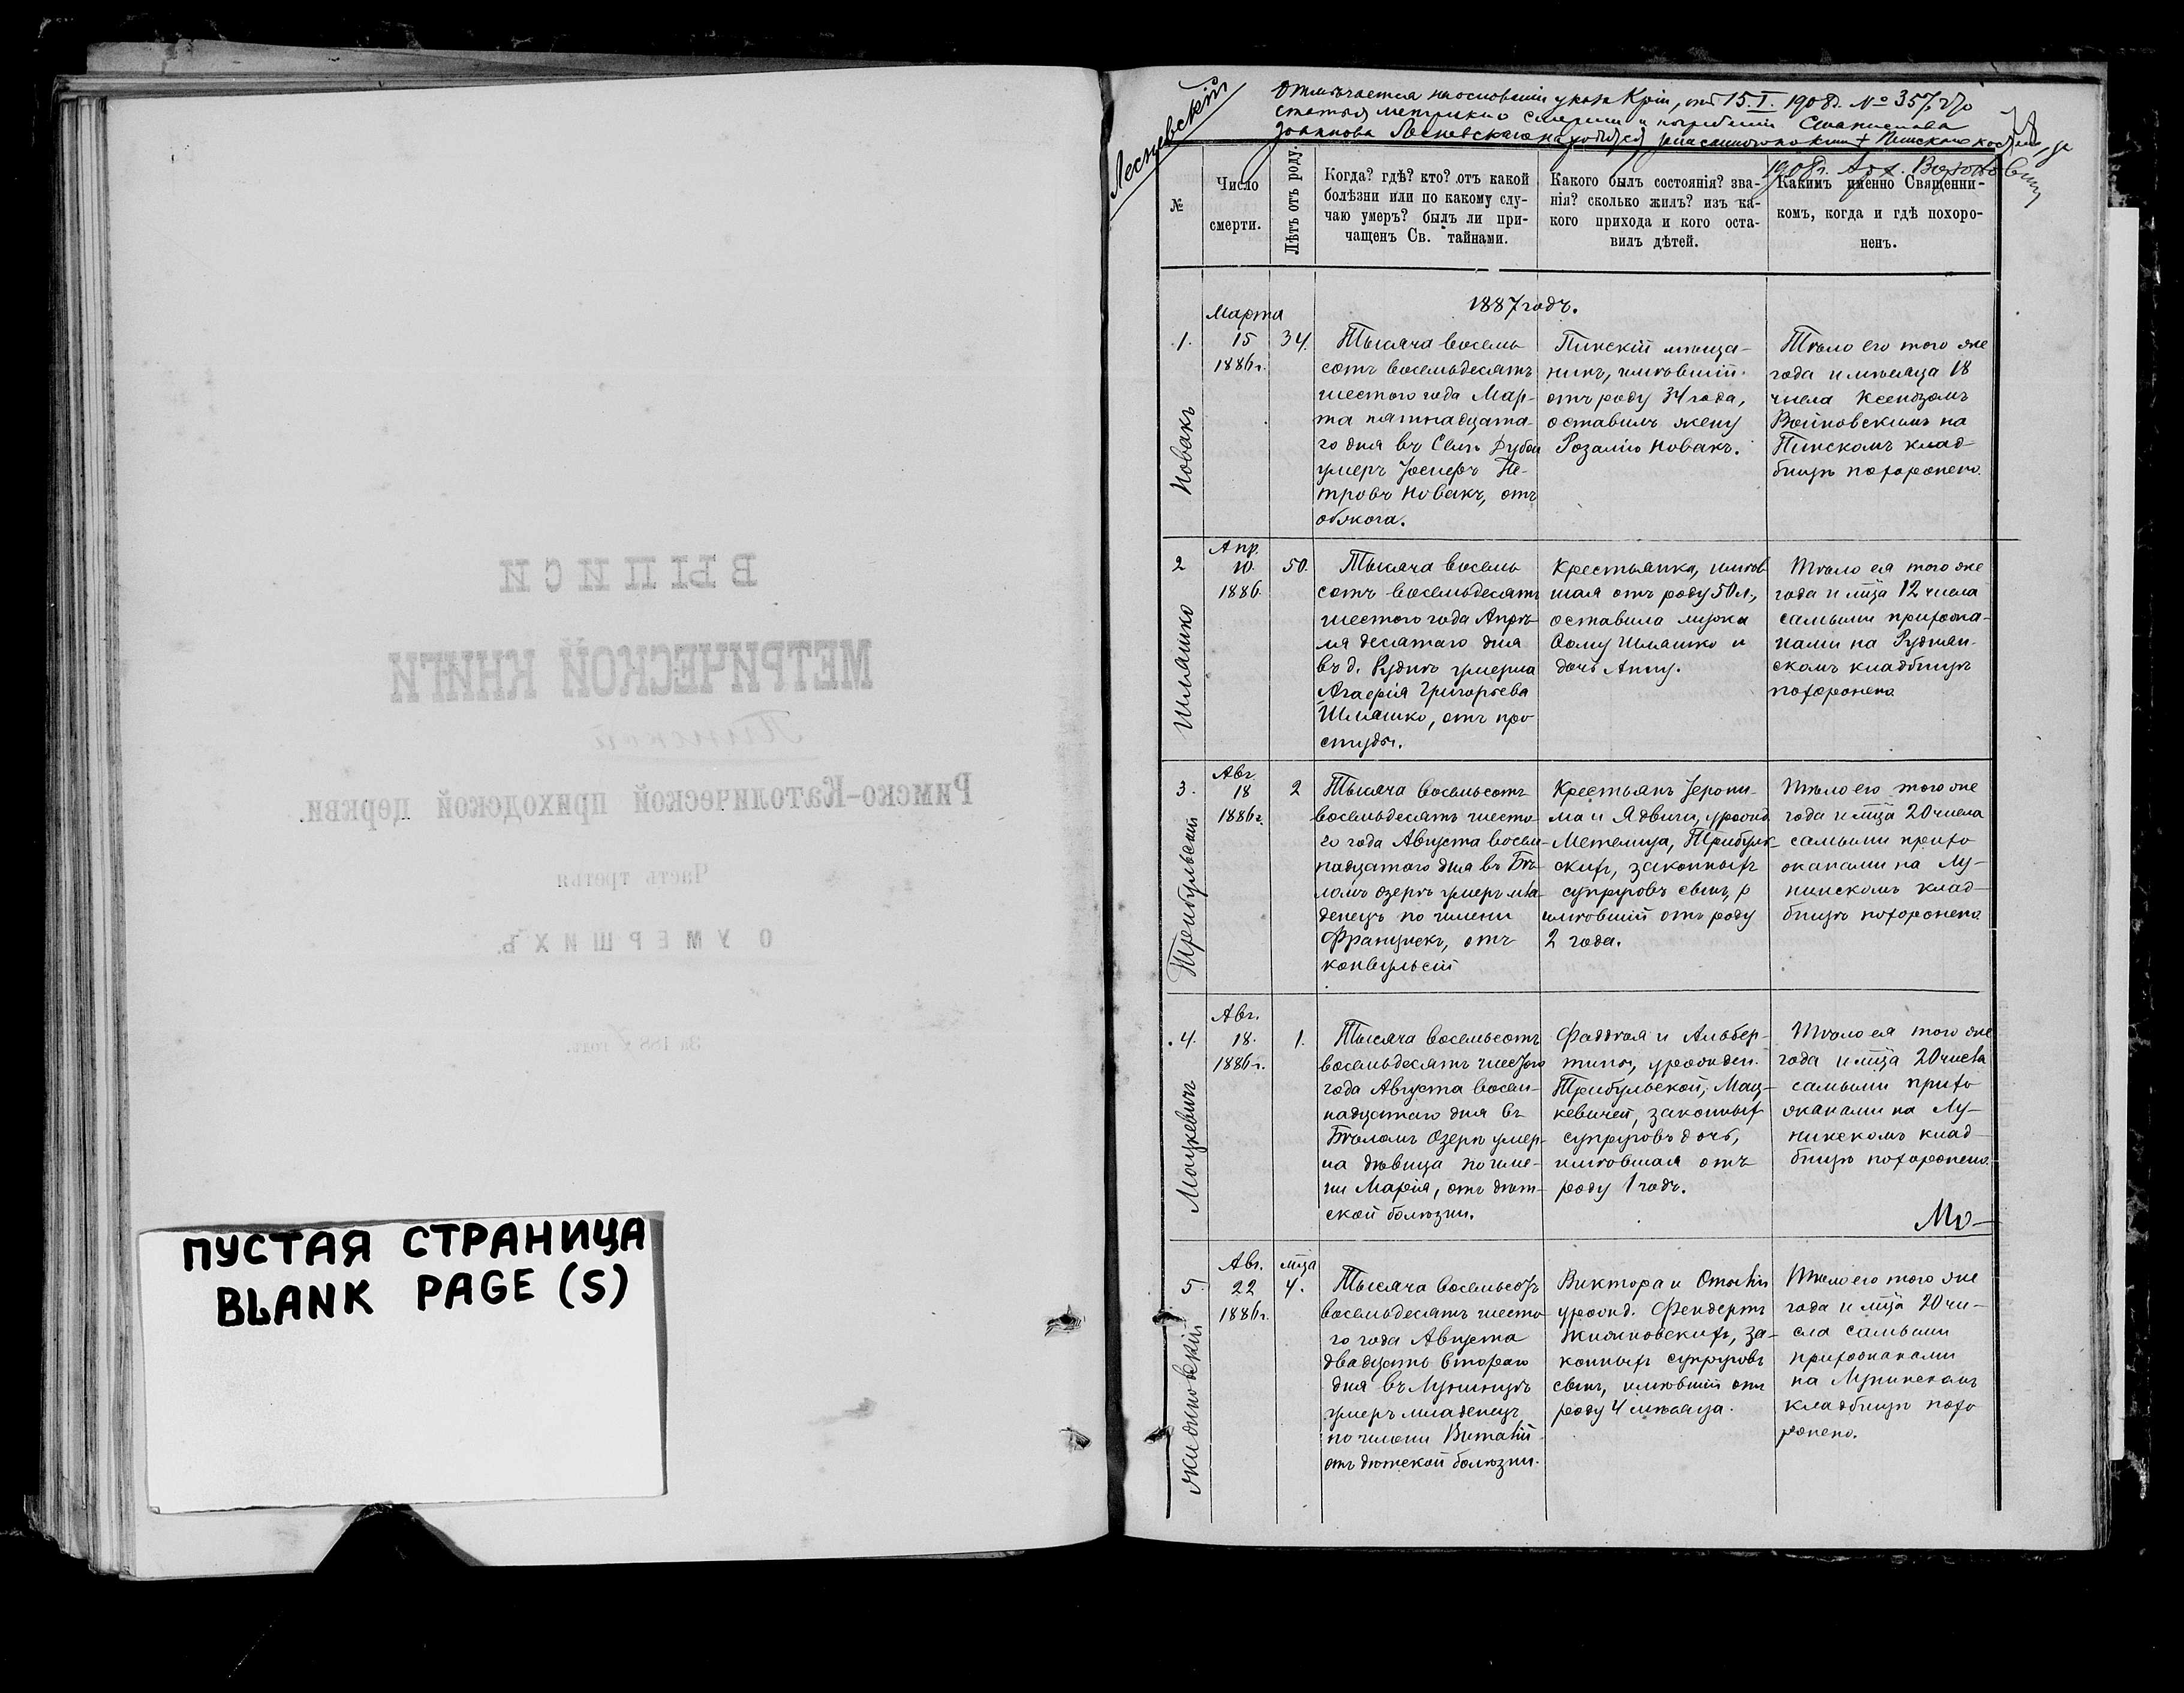 ВЫПИСИ
МЕТРИЧЕСКОЙ КНИГИ
Пинской
Римско-Католической приходской церкви.
Часть третья
О УМЕРШИХЪ.
За 188 годъ.
ПУСТАЯ СТРАНИЦА
BLANK PAGE (S)
Лесневскій
Отмѣчается на основаніи указа Кріи, отъ 15.I.1908г. № 357, что
статья метрики о смерти и погребеніи Станислава
1908г.
№
Число
смерти.
Лѣтъ отъ роду.
Когда? гдѣ? кто? отъ какой
болѣзни или по какому слу-
чаю умеръ? былъ ли при-
чащенъ Св. тайнами.
Какого былъ состоянія? зва-
нія? сколько жилъ? изъ ка-
кого прихода и кого оста-
вилъ дѣтей.
Какимъ именно Священни-
комъ, когда и гдѣ похоро-
ненъ.
1887 годъ.
1.
Новакъ
Марта
15
1886г.
34.
Тысяча восемь
сотъ восемьдесятъ
шестого года Мар-
та пятнадцата-
го дня въ Селѣ
умеръ Іосифъ Пе-
тровъ Новакъ, отъ
ожога.
Пинскій мѣща-
нинъ, имѣвшій
отъ роду 34 года,
оставилъ жену
Розалію Новакъ.
Тѣло его того же
года и мѣсяца 18
числа Ксендзомъ
Войновскимъ на
Пинскомъ клад-
бищѣ похоронено.
2
Шляшко
Апр.
10.
1886.
50.
Тысяча восемь
сотъ восемьдесятъ
шестого года Апрѣ-
ля десятаго дня
въ д. Рудкѣ умерла
Агафія Григорьева
Шляшко, отъ про
студы.
Крестьянка, имѣв
шая отъ роду 50 л.,
оставила мужа
Ѳому Шляшко и
дочь Анну.
Тѣло ея того же
года и мѣсяца 12 числа
самыми прихожа-
нами на Руднян-
скомъ кладбищѣ
похоронено
3.
Трибульскій
Авг.
18
1886г.
2
Тысяча восемьсотъ
восемьдесятъ шесто-
го года Августа восем-
надцатаго дня въ Бѣ-
ломъ озерѣ умеръ мла-
денецъ по имени
Францискъ, отъ
конвульсій
Крестьянъ Іерони-
ма и Ядвиги, урожд.
Метелица, Трибульс-
кихъ, законныхъ
супруговъ сынъ,
имѣвшій отъ роду
2 года.
Тѣло его того же
года и мѣсяца 20 числа
самыми прихо
жанами на Лу-
нинскомъ клад-
бищѣ похоронено
4.
Мацкевичъ
Авг.
18.
1886г.
1.
Тысяча восемьсотъ
восемьдесятъ шестого
года Августа восем-
надцатаго дня въ
Бѣломъ Озерѣ умер-
ла дѣвица по име-
ни Марія, отъ дѣт-
ской болѣзни.
Фаддѣя и Альбер-
тины, урожден.
Трибульской, Мац-
кевичей, законныхъ
супруговъ дочь,
имѣвшая отъ
роду 1 годъ.
Тѣло ея того же
года и мѣсяца 20 числа
самыми прихо
жанами на Лу-
нинскомъ клад
бищѣ похоронено.
5.
Жижновскій
Авг.
22
1886г.
мѣсяца
4.
Тысяча восемьсотъ
восемьдесятъ шесто-
го года Августа
двадцать втораго
дня въ Лунинцѣ
умеръ младенецъ
по имени Виталій
отъ дѣтской болѣзни.
Виктора и
урожд. Фендертъ
Жижновскихъ, за-
конныхъ супруговъ
сынъ, имѣвшій отъ
роду 4 мѣсяца.
Тѣло его того же
года и мѣсяца 20 чи-
сла самыми
прихожанами
на Лунинскомъ
кладбищѣ похо
ронено.